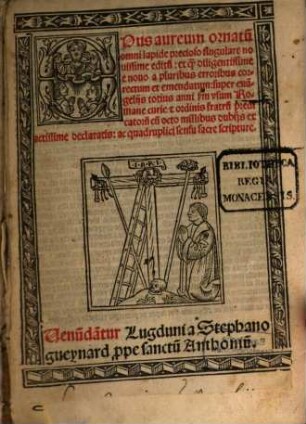 Opus aureum ornatũ
omni lapide precioso singulari: no
uissime editũ: et q̃ diligentissime
e nouo a pluribus erroribus cor
rectum et emendatum: super euã
gelijs totius anni scđm vsum Ro
mane curie et ordinis fratrũ predi
catorũ cũ octo millibus dubijs et
actissime declaratis: ac quadruplici sensu sacre scripture.
BIBLIOTHECA
REGIA
MONACENSIS.
Uenũdãtur Lugduni a Stephano
gueynard ꝓpe sanctũ Anthoniũ.